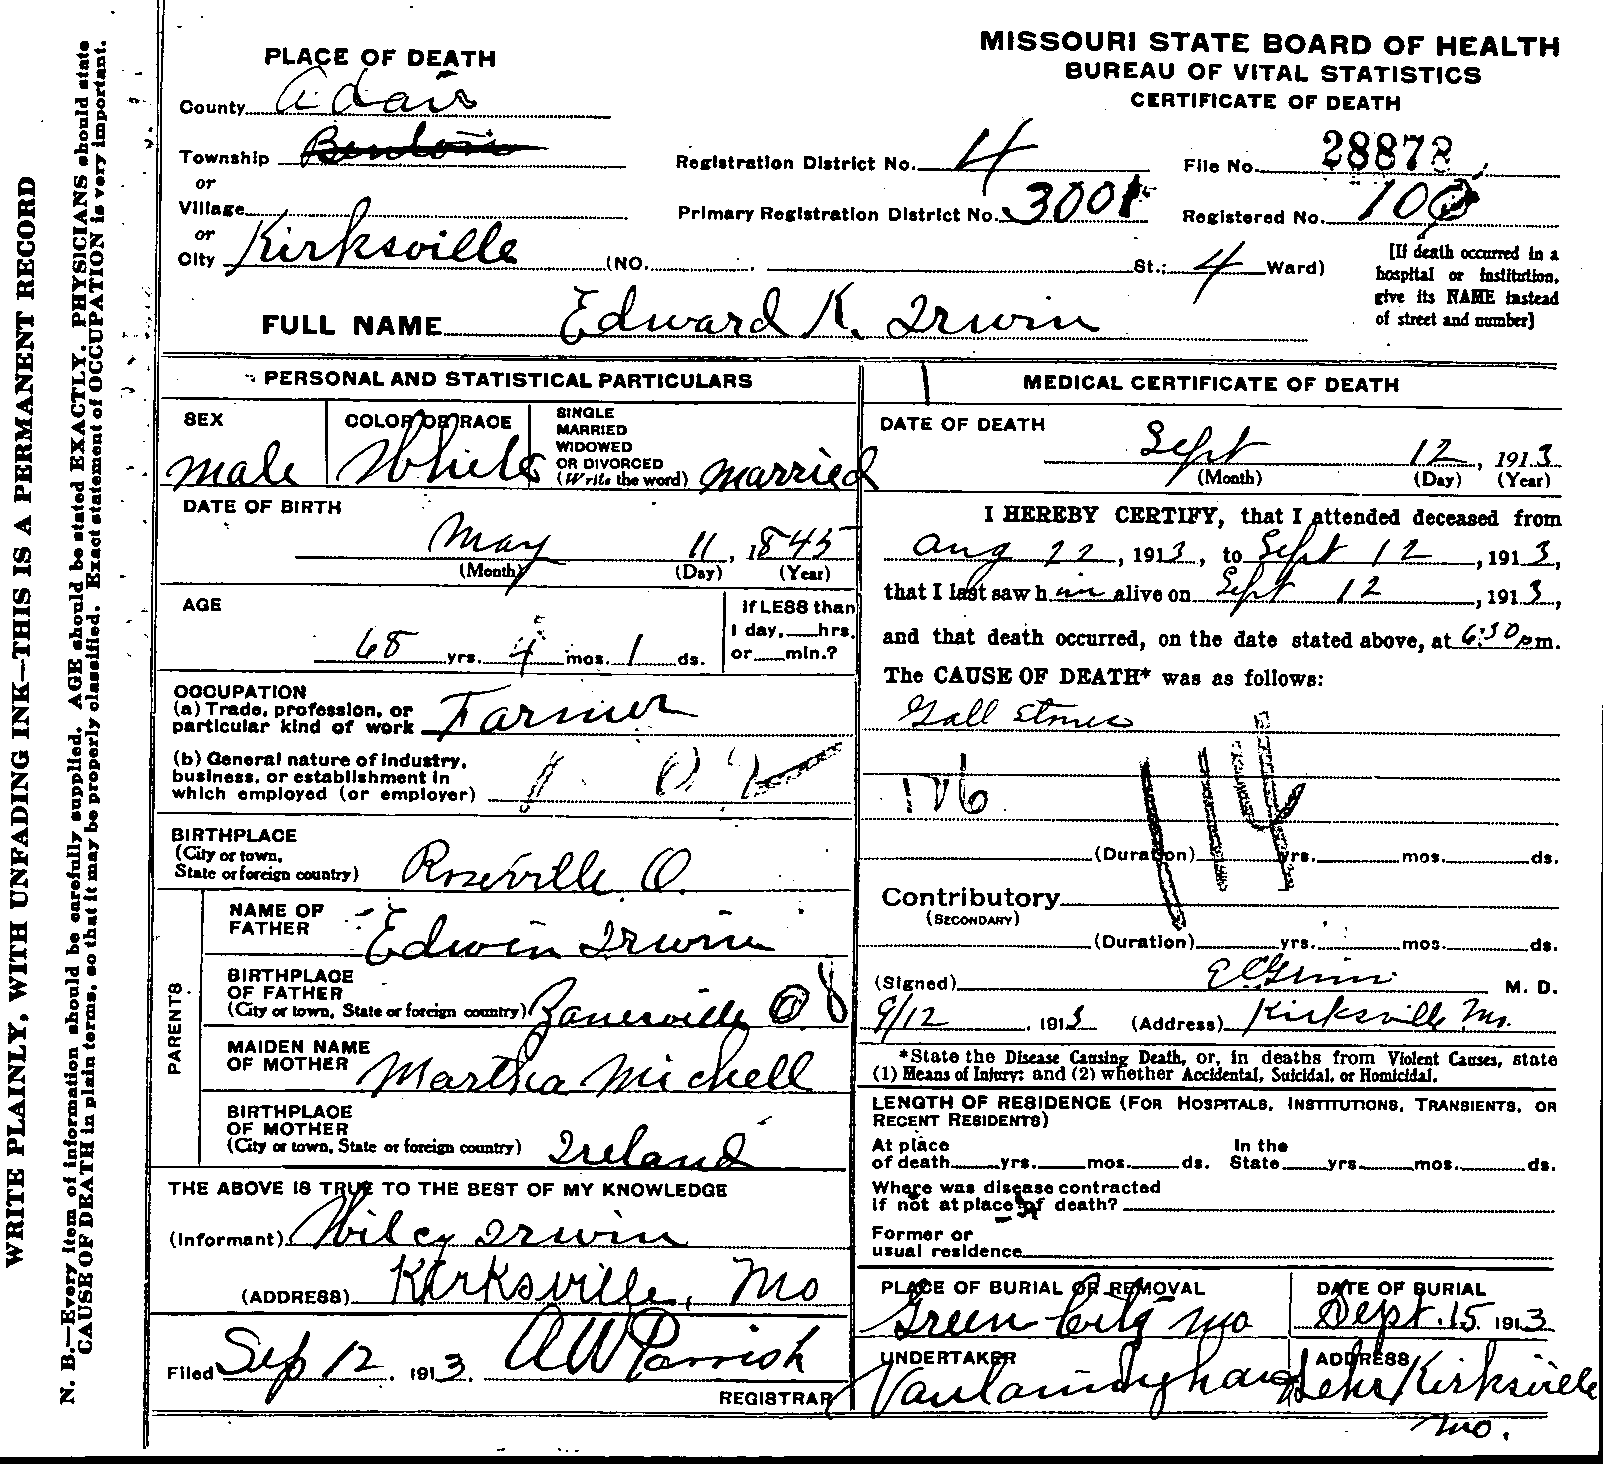 WRITE PLAINLY, WITH UNFADING INK—THIS IS A PERMANENT RECORD
N. B.—Every item of information should be carefully supplied. AGE should be stated EXACTLY. PHYSICIANS should state
CAUSE OF DEATH in plain terms, so that it may be properly classified. Exact statement of OCCUPATION is very important.
MISSOURI STATE BOARD OF HEALTH
BUREAU OF VITAL STATISTICS
CERTIFICATE OF DEATH
PLACE OF DEATH
County Adair
Township Benton
or
Village
or
City Kirksville (NO. St.; 4 Ward)
Registration District No. 4 File No. 28878
Primary Registration District No. 3001 Registered No. 100
[If death occurred in a
hospital or institution,
give its NAME instead
of street and number]
FULL NAME Edward K. Irwin
PERSONAL AND STATISTICAL PARTICULARS
SEX
male
COLOR OR RACE
White
SINGLE
MARRIED
WIDOWED
OR DIVORCED
(Write the word) married
DATE OF BIRTH
May 11, 1845
(Month) (Day) (Year)
AGE
68 yrs. 4 mos. 1 ds.
If LESS than
1 day, hrs.
or min.?
OCCUPATION
(a) Trade, profession, or
particular kind of work Farmer
(b) General nature of industry,
business, or establishment in
which employed (or employer)
BIRTHPLACE
(City or town,
State or foreign country) Roseville O.
PARENTS
NAME OF
FATHER Edwin Irwin
BIRTHPLACE
OF FATHER
(City or town, State or foreign country) Zanesville O
MAIDEN NAME
OF MOTHER Martha Michell
BIRTHPLACE
OF MOTHER
(City or town, State or foreign country) Ireland
THE ABOVE IS TRUE TO THE BEST OF MY KNOWLEDGE
(Informant) Wiley Irwin
(ADDRESS) Kirksville, Mo
Filed Sep 12, 1913. A W Parrish
REGISTRAR
MEDICAL CERTIFICATE OF DEATH
DATE OF DEATH
Sept 12, 1913
(Month) (Day) (Year)
I HEREBY CERTIFY, that I attended deceased from
Aug 22, 1913, to Sept 12, 1913,
that I last saw him alive on Sept 12, 1913,
and that death occurred, on the date stated above, at 6:30 pm.
The CAUSE OF DEATH* was as follows:
Gall Stones
114
(Duration) yrs. mos. ds.
Contributory
(SECONDARY)
(Duration) yrs. mos. ds.
(Signed) E C Grim M. D.
9/12, 1913 (Address) Kirksville Mo.
*State the Disease Causing Death, or, in deaths from Violent Causes, state
(1) Means of Injury; and (2) whether Accidental, Suicidal, or Homicidal.
LENGTH OF RESIDENCE (FOR HOSPITALS, INSTITUTIONS, TRANSIENTS, OR
RECENT RESIDENTS)
At place In the
of death yrs. mos. ds. State yrs. mos. ds.
Where was disease contracted
if not at place of death?
Former or
usual residence
PLACE OF BURIAL OR REMOVAL
Green City Mo
DATE OF BURIAL
Sept. 15 1913
UNDERTAKER
ADDRESS
Kirksville
Mo.